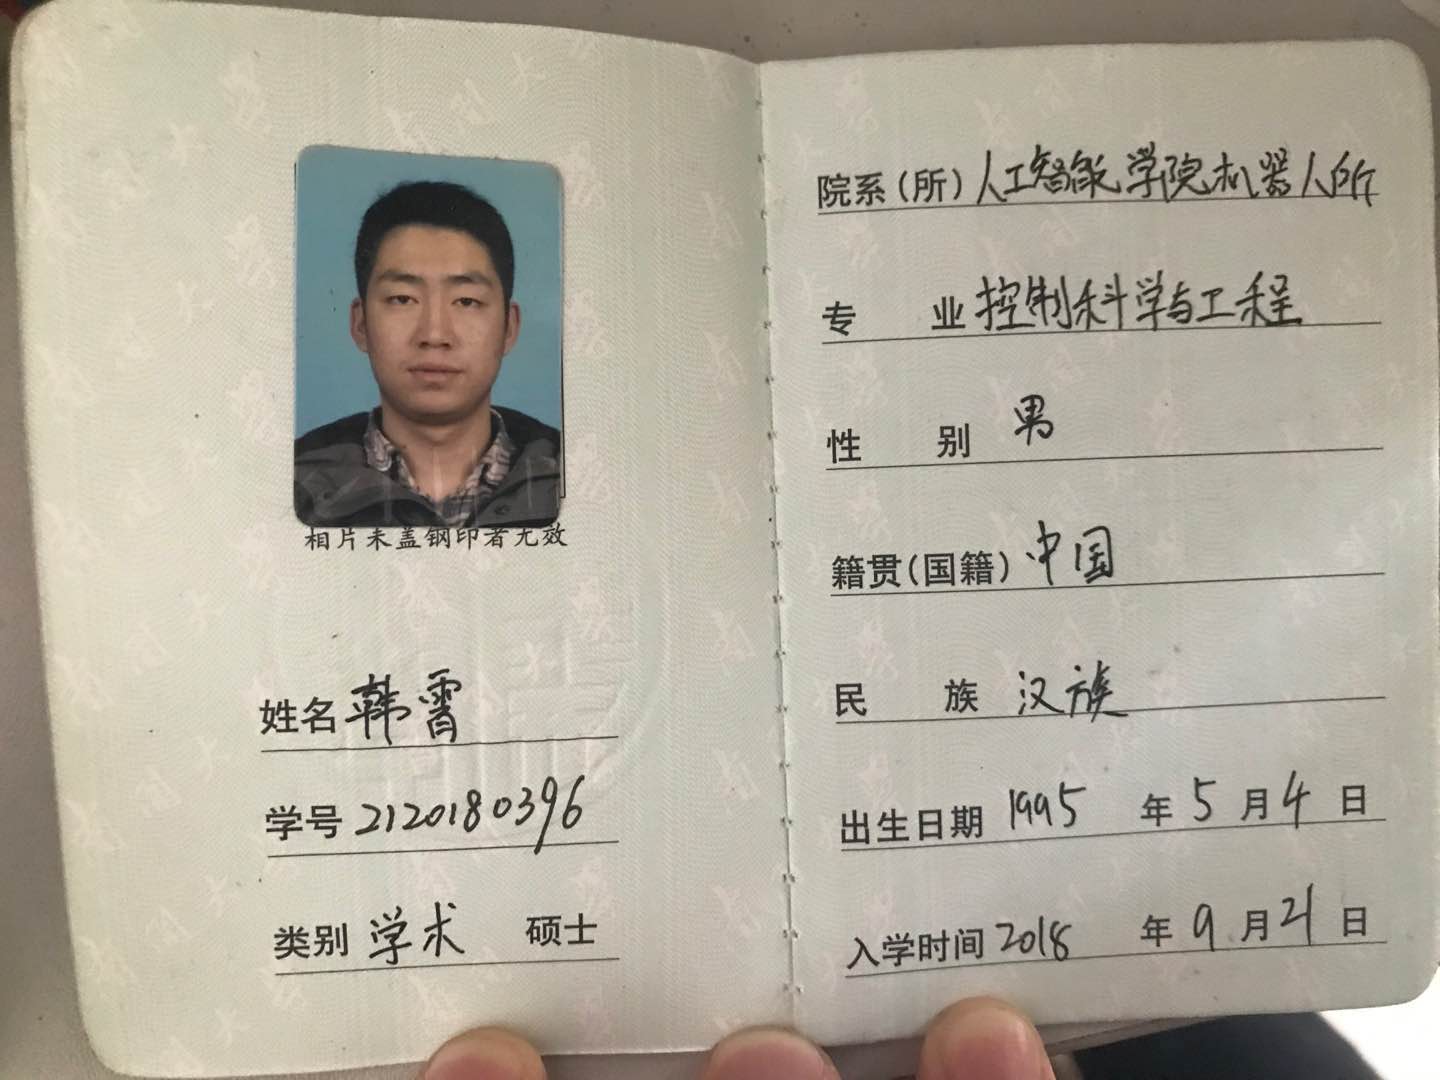 相片未盖钢印者无效
姓名 韩霄
学号 2120180396
类别 学术 硕士
院系(所) 人工智能学院机器人所
专业 控制科学与工程
性别 男
籍贯(国籍) 中国
民族 汉族
出生日期 1995 年 5 月 4 日
入学时间 2018 年 9 月 21 日